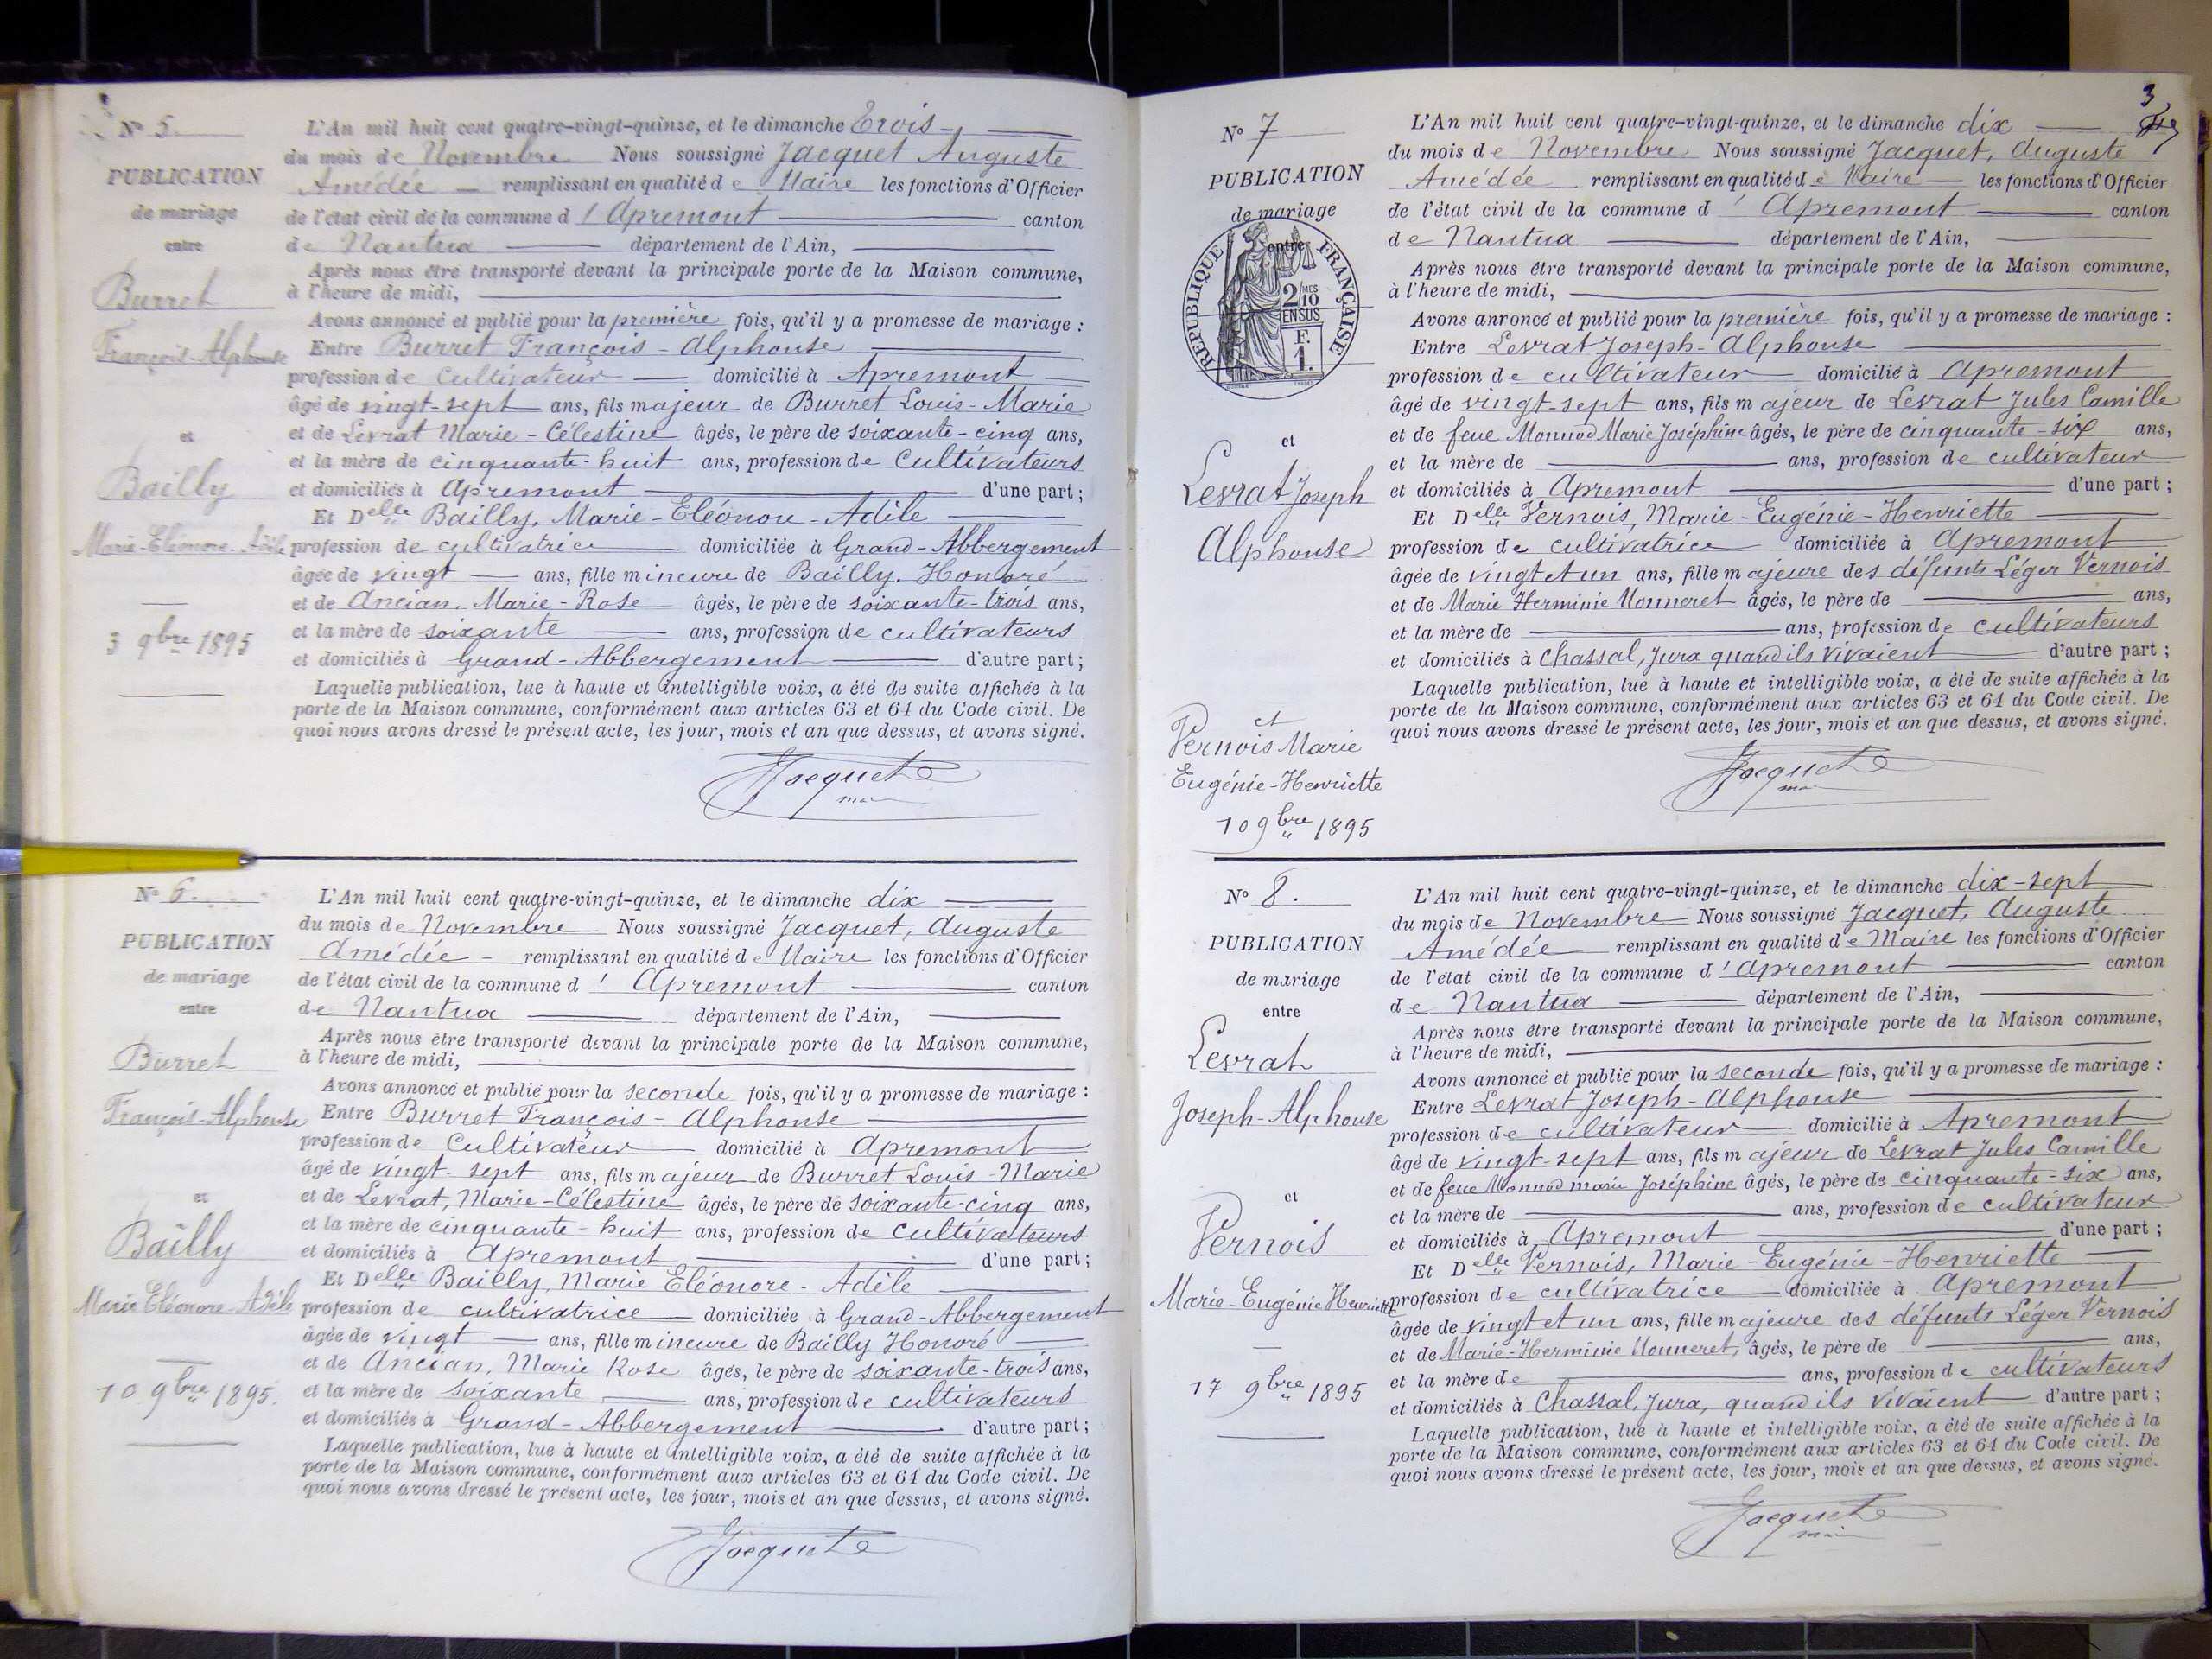 N° 5.
PUBLICATION
de mariage
entre
Burret
François-Alphonse
et
Bailly
Marie-Eléonore-Adèle
3 9bre 1895
L'An mil huit cent quatre-vingt-quinze, et le dimanche Trois
du mois de Novembre Nous soussigné Jacquet Auguste
Amédée remplissant en qualité de Maire les fonctions d'Officier
de l'état civil de la commune d'Apremont canton
de Nantua département de l'Ain,
Après nous être transporté devant la principale porte de la Maison commune,
à l'heure de midi,
Avons annoncé et publié pour la première fois, qu'il y a promesse de mariage :
Entre Burret François-Alphonse
profession de Cultivateur domicilié à Apremont
âgé de vingt-sept ans, fils majeur de Burret Louis-Marie
et de Levrat Marie-Célestine âgés, le père de soixante-cinq ans,
et la mère de cinquante-huit ans, profession de Cultivateurs
et domiciliés à Apremont d'une part ;
Et Delle Bailly, Marie-Eléonore-Adèle
profession de cultivatrice domiciliée à Grand-Abbergement
âgée de vingt ans, fille mineure de Bailly, Honoré
et de Ancian, Marie-Rose âgés, le père de soixante-trois ans,
et la mère de soixante ans, profession de cultivateurs
et domiciliés à Grand-Abbergement d'autre part ;
Laquelle publication, lue à haute et intelligible voix, a été de suite affichée à la
porte de la Maison commune, conformément aux articles 63 et 64 du Code civil. De
quoi nous avons dressé le présent acte, les jour, mois et an que dessus, et avons signé.
Jacquet
N° 6.
PUBLICATION
de mariage
entre
Burret
François-Alphonse
et
Bailly
Marie Eléonore-Adèle
10 9bre 1895.
L'An mil huit cent quatre-vingt-quinze, et le dimanche dix
du mois de Novembre Nous soussigné Jacquet, Auguste
Amédée remplissant en qualité de Maire les fonctions d'Officier
de l'état civil de la commune d'Apremont canton
de Nantua département de l'Ain,
Après nous être transporté devant la principale porte de la Maison commune,
à l'heure de midi,
Avons annoncé et publié pour la seconde fois, qu'il y a promesse de mariage :
Entre Burret François-Alphonse
profession de Cultivateur domicilié à Apremont
âgé de vingt-sept ans, fils majeur de Burret Louis-Marie
et de Levrat, Marie-Célestine âgés, le père de soixante-cinq ans,
et la mère de cinquante-huit ans, profession de Cultivateurs
et domiciliés à Apremont d'une part ;
Et Delle Bailly, Marie Eléonore-Adèle
profession de cultivatrice domiciliée à Grand-Abbergement
âgée de vingt ans, fille mineure de Bailly Honoré
et de Ancian, Marie Rose âgés, le père de soixante-trois ans,
et la mère de soixante ans, profession de cultivateurs
et domiciliés à Grand-Abbergement d'autre part ;
Laquelle publication, lue à haute et intelligible voix, a été de suite affichée à la
porte de la Maison commune, conformément aux articles 63 et 64 du Code civil. De
quoi nous avons dressé le présent acte, les jour, mois et an que dessus, et avons signé.
Jacquet
3
N° 7
PUBLICATION
de mariage
entre
RÉPUBLIQUE FRANÇAISE
2 MES 10
EN SUS
F.
1.
et
Levrat Joseph
Alphonse
et
Vernois Marie
Eugénie-Henriette
10 9bre 1895
L'An mil huit cent quatre-vingt-quinze, et le dimanche dix
du mois de Novembre Nous soussigné Jacquet, Auguste
Amédée remplissant en qualité de Maire les fonctions d'Officier
de l'état civil de la commune d'Apremont canton
de Nantua département de l'Ain,
Après nous être transporté devant la principale porte de la Maison commune,
à l'heure de midi,
Avons annoncé et publié pour la première fois, qu'il y a promesse de mariage :
Entre Levrat Joseph-Alphonse
profession de cultivateur domicilié à Apremont
âgé de vingt-sept ans, fils majeur de Levrat Jules Camille
et de feue Monnod Marie Joséphine âgés, le père de cinquante-six ans,
et la mère de ans, profession de cultivateur
et domiciliés à Apremont d'une part ;
Et Delle Vernois, Marie-Eugénie-Henriette
profession de cultivatrice domiciliée à Apremont
âgée de vingt et un ans, fille majeure des défunts Léger Vernois
et de Marie Herminie Monneret âgés, le père de ans,
et la mère de ans, profession de cultivateurs
et domiciliés à Chassal, Jura quand ils vivaient d'autre part ;
Laquelle publication, lue à haute et intelligible voix, a été de suite affichée à la
porte de la Maison commune, conformément aux articles 63 et 64 du Code civil. De
quoi nous avons dressé le présent acte, les jour, mois et an que dessus, et avons signé.
Jacquet
N° 8.
PUBLICATION
de mariage
entre
Levrat
Joseph-Alphonse
et
Vernois
Marie-Eugénie Henriette
17 9bre 1895
L'An mil huit cent quatre-vingt-quinze, et le dimanche dix-sept
du mois de Novembre Nous soussigné Jacquet, Auguste
Amédée remplissant en qualité de Maire les fonctions d'Officier
de l'état civil de la commune d'Apremont canton
de Nantua département de l'Ain,
Après nous être transporté devant la principale porte de la Maison commune,
à l'heure de midi,
Avons annoncé et publié pour la seconde fois, qu'il y a promesse de mariage :
Entre Levrat Joseph-Alphonse
profession de cultivateur domicilié à Apremont
âgé de vingt-sept ans, fils majeur de Levrat Jules Camille
et de feue Monnod Marie Joséphine âgés, le père de cinquante-six ans,
et la mère de ans, profession de cultivateur
et domiciliés à Apremont d'une part ;
Et Delle Vernois, Marie-Eugénie-Henriette
profession de cultivatrice domiciliée à Apremont
âgée de vingt et un ans, fille majeure des défunts Léger Vernois
et de Marie-Herminie Monneret, âgés, le père de ans,
et la mère de ans, profession de cultivateurs
et domiciliés à Chassal, Jura, quand ils vivaient d'autre part ;
Laquelle publication, lue à haute et intelligible voix, a été de suite affichée à la
porte de la Maison commune, conformément aux articles 63 et 64 du Code civil. De
quoi nous avons dressé le présent acte, les jour, mois et an que dessus, et avons signé.
Jacquet